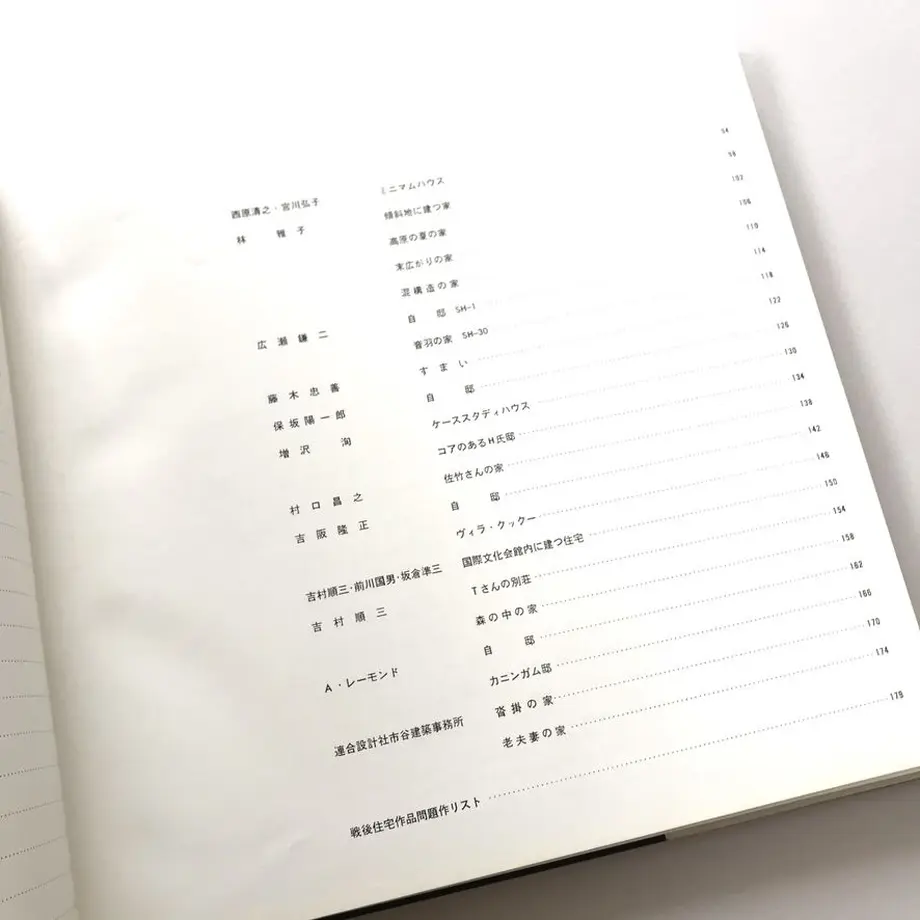 西原清之・宮川弘子 ミニマムハウス 94
林 雅子 傾斜地に建つ家 98
高原の夏の家 102
末広がりの家 106
混構造の家 110
広瀬鎌二 自邸 SH-1 114
音羽の家 SH-30 118
藤木忠善 すまい 122
保坂陽一郎 自邸 126
増沢 洵 ケーススタディハウス 130
コアのあるH氏邸 134
村口昌之 佐竹さんの家 138
吉阪隆正 自邸 142
ヴィラ・クックー 146
吉村順三・前川国男・坂倉準三 国際文化会館内に建つ住宅 150
吉村順三 Tさんの別荘 154
森の中の家 158
A・レーモンド 自邸 162
カニンガム邸 166
連合設計社市谷建築事務所 沓掛の家 170
老夫妻の家 174
戦後住宅作品問題作リスト 178